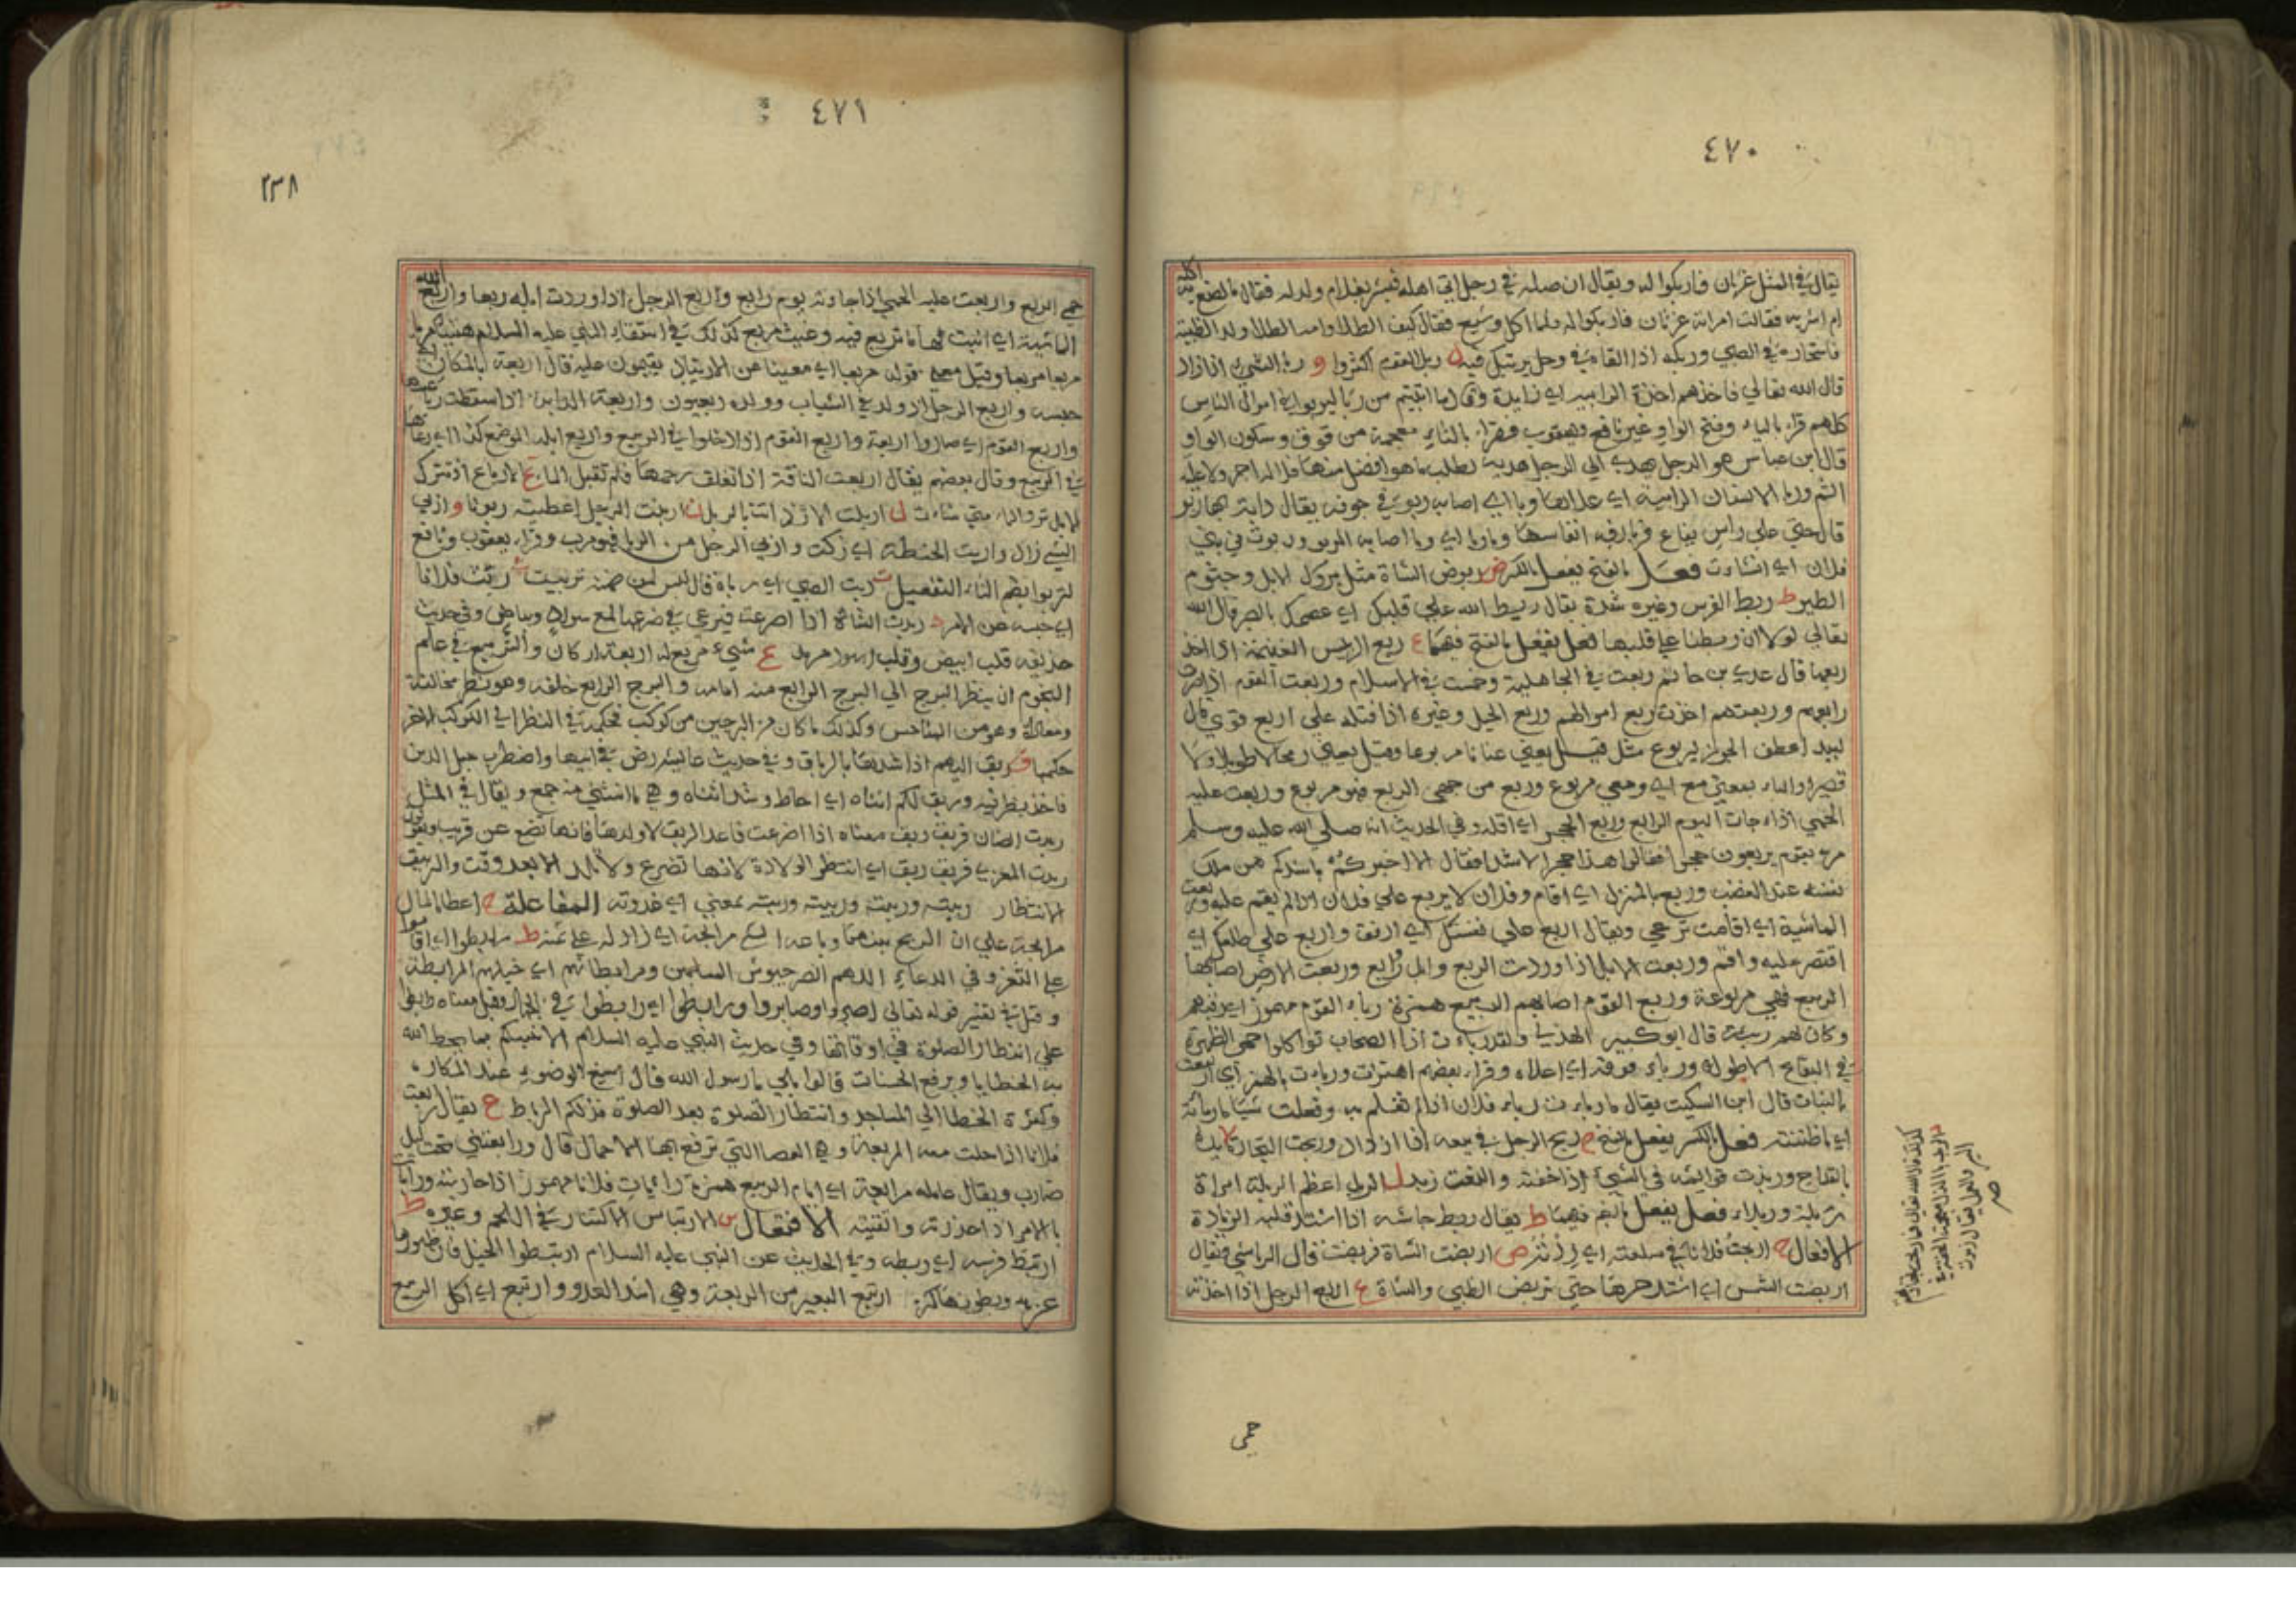 ٤٧٠
يقال في المثل غرثان فاربكوا له ويقال ان اصله في رجل اتى اهله فبشر بغلام ولد له فقال ما اصنع به اكله
ام اشربه فقالت امراته غرثان فاربكوا له فلما اكل وشبع فقال كيف الطلا وامه الطلا ولد الظبية
فاستعاره في الصبي وربكه اذا القاه في وحل يرتبك فيه ل ربل القوم كثروا و ربا الشيء اذا زاد
قال الله تعالى فاخذهم اخذة الرابية اي زايدة وقال وما اتيتم من ربا ليربوا في اموال الناس
كلهم قراء بالياء وفتح الواو غير نافع ويعقوب فقراء بالتاء معجمة من فوق وسكون الواو
قال ابن عباس هو الرجل يهدي الى الرجل هدية لطلب ما هو افضل منها فلا له اجر ولا عليه
اثم وربا الانسان الرابية اي علاها وربا اي اصابه الربو في جوفه يقال دابة بها ربو
قال حتى علي راس يفاع فربا رفه انفاسها وما ربا اي وما اصابه الربو وربوت في بني
فلان اي انشات فعل بالفتح يفعل بالكسر ض ربوض الشاة مثل بروك الابل وجثوم
الطير ط ربط الفرس وغيره شده يقال ربط الله علي قلبك اي عصمك بالصبر قال الله
تعالى لولا ان ربطنا علي قلبها فعل يفعل بالفتح فيهما ع ربع الرئيس الغنيمة اي اخذ
ربعها قال عدي بن حاتم ربعت في الجاهلية وخمست في الاسلام وربعت القوم اذا صرت
رابعهم وربعتهم اخذت ربع اموالهم وربع الحبل وغيره اذا فتله علي اربع قوي قال
لبيد اعطف الجون بمربوع متل قيل يعني عنانا مربوعا وقيل يعني رمحا لا طويلا ولا
قصيرا والباء بمعني مع اي ومعي مربوع وربع من حمى الربع فهو مربوع وربعت عليه
الحمي اذا جات اليوم الرابع وربع الحجر اي اقله وفي الحديث انه صلي الله عليه وسلم
مر بقوم يربعون حجرا فقالوا هذا حجر الاشداء فقال الا اخبركم باشدكم من ملك
نفسه عند الغضب وربع بالمنزل اي اقام وفلان لا يربع علي فلان اي لم يقم عليه وربعت
الماشية اي اقامت ترعي ويقال اربع علي نفسك اي ارفق واربع علي ظلعك اي
اقتصر عليه واقم وربعت الابل اذا وردت الربع وابل روابع وربعت الارض اصابها
الربيع فهي مربوعة وربع القوم اصابهم الربيع همزة رباء القوم مهموز اي رقبهم
وكان لهم ربيئة قال ابو كبير الهذلي ولقد رباءت اذا الصحاب تواكلوا حمي الظهيرة
في اليفاع الاطول ورباء فوقه اي اعلاه وقراء بعضهم اهتزت ورباءت بالهمز اي ارتفعت
بالنبات قال ابن السكيت يقال ما رباءت رباء فلان اذا لم تعلم به وفعلت شيا ما ربات به
اي ما ظننته فعل بالكسر يفعل بالفتح ح ربح الرجل في بيعه اذا ازداد وربحت التجارة ذ ربذت يده
بالقداح وربذت قوايمه في الشيء اذا خفت والنعت ربذ ل الربل اعظم الربلة امراة
ربلة وربلاء فعل يفعل بالضم فيهما ط يقال ربط جاشه اذا اشتد قلبه الزيادة
الافعال ح اربحت فلانا في سلعته اي زدته ض اربضت الشاة فربضت قال الرياشي ويقال
اربضت الشمس اي اشتد حرها حتي تربض الظبي والشاة ع اربع الرجل اذا اخذته
حمى
٤٧١
٢٣٨
حمي الربع واربعت عليه الحمي اذا جاءته يوم رابع واربع الرجل اذا وردت ابله ربعا واربع الله
الماشية اي انبت لها ما تربع فيه وغيث مربع كذلك في استسقاء النبي عليه السلام
مربعا مربعا وقيل معني قوله مربعا اي مغنيا عن الارتياد يقيمون عليه قال اربعه بالمكان اي
حبسه واربع الرجل اذا ولد في الشباب وولده ربعيون
واربع القوم اي صاروا اربعة واربع القوم اذا دخلوا في الربيع واربع ابله الموضع كذا اي رعاها
في الربيع وقال بعضهم يقال اربعت الناقة اذا انغلقت رحمها فلم تقبل الماء غ الارباغ اذا تترك
الابل ترد الماء متي شاءت ل اربلت الارض اتت بالربل ن اربنت الرجل اعطيته ربونا و اربي
الشيء زاد واربت الحنطة اي زكت واربي الرجل من الربا فهو مرب وقراء يعقوب ونافع
لتربوا بضم التاء التفعيل ت ربت الصبي اي رباه قال ليس لمن ضمنه تربيت ث ربث فلانا
اي حبسه عن الامر د ربدت الشاة اذا اضرعت فترى في ضرعها لمع سواد وبياض وفي حديث
حذيفه قلب ابيض وقلب اسود مربد ع شيء مربع له اربعة اركان والتربيع في علم
النجوم ان ينظر البرج الي البرج الرابع منه امامه والبرج الرابع خلفه وهو نظر مخالفة
ومعاداة وهو من المناحس وكذلك ما كان في البرجين من كوكب فحكمه في النظر الي الكوكب الاخر
حكمها ق ربق البهم اذا شدها بالرباق وفي حديث عايشه رض في ابيها واضطرب حبل الدين
فاخذ بطرفيه وربق لكم اثناه اي احاط وشد اثناه وهي ما انثني منه جمع ويقال في المثل
ربدت الضان فربق ربق معناه اذا اضرعت فاعد الربق لاولادها فانها تضع عن قريب ويقول
ربدت المعزي فربق ربق اي انتظر الولادة لانها تضرع ولا تلد الا بعد وقت والتربيق
الانتظار ربيته وربيته بمعني اي غذوته المفاعلة ح اعطا المال
مرابحة علي ان الربح بينهما وباعه الشيء مرابحة اي زاد له علي ثمنه ط رابطوا اي اقاموا
علي الثغر وفي الدعاء اللهم انصر جيوش المسلمين ومرابطاتهم اي خيلهم المرابطة
وقيل في تفسير قوله تعالى اصبروا وصابروا ورابطوا اي رابطوا في الجهاد وقيل معناه رابطوا
علي انتظار الصلوة في اوقاتها وفي حديث النبي عليه السلام الا انبيكم بما يحط الله
به الخطايا ويرفع الحسنات قالوا بلي يا رسول الله قال اسبغ الوضوء عند المكاره
وكثرة الخطا الي المساجد وانتظار الصلوة بعد الصلوة فذلكم الرباط ع يقال رابعت
فلانا اذا حملت معه المربعة وهي العصا التي ترفع بها الاحمال قال ورابعتني تحت ليل
ضارب ويقال عامله مرابعة اي ايام الربيع همزة راباءت فلانا مهموز اذا حارسته وراباءت
بالامر اذا حذرته واتقيته الافتعال س الارتباس الاكتناز في اللحم وغيره ط
ارتبط فرسه اي ربطه وفي الحديث عن النبي عليه السلام ارتبطوا الخيل فان ظهورها
عز وبطونها كنز ع ارتبع البعير من الربعة وهي اشد العدو وارتبع اي اكل الربيع